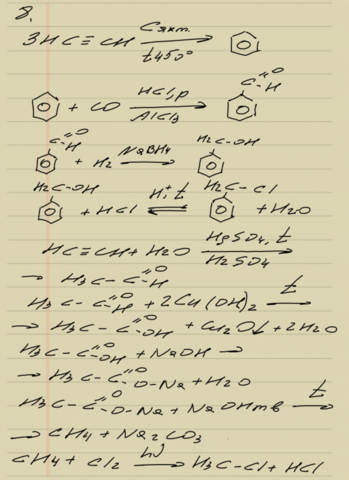 8.
3HC≡CH C акт. t 450° →
+ CO HCl, p AlCl3 → C=O -H
C=O -H + H2 NaBH4 → H2C-OH
H2C-OH + HCl H+, t ⇌ H2C-Cl + H2O
HC≡CH + H2O HgSO4, t H2SO4 →
→ H3C-C=O -H
H3C-C=O -H + 2Cu(OH)2 t →
→ H3C-C=O -OH + Cu2O↓ + 2H2O
H3C-C=O -OH + NaOH →
→ H3C-C=O -O-Na + H2O
H3C-C=O -O-Na + NaOH тв t →
→ CH4 + Na2CO3
CH4 + Cl2 hν → H3C-Cl + HCl